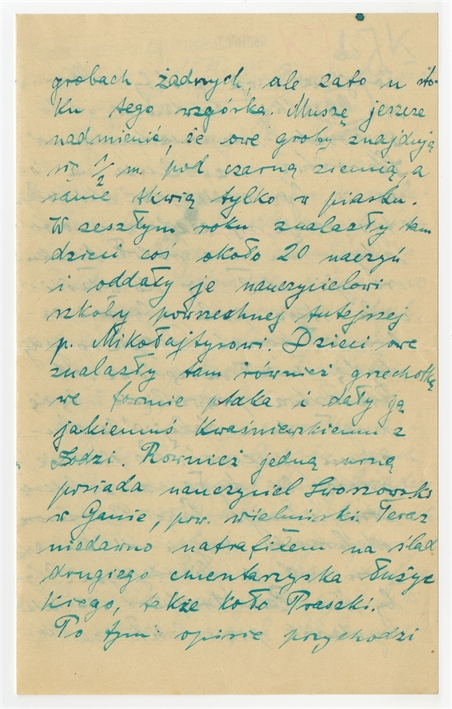 grobach żadnych, ale zato u sto-
ku tego wzgórka. Muszę jeszcze
nadmienić, że owe groby znajdują
się 1/2 m pod czarną ziemią, a
same tkwią tylko w piasku.
W zeszłym roku znalazły tam
dzieci coś około 20 naczyń
i oddały je nauczycielowi
szkoły powszechnej tutejszej
p. Mikołajtysowi. Dzieci owe
znalazły tam również grzechotkę
we formie ptaka i dały ją
jakiemuś Kwaśniewskiemu z
Łodzi. Również jedną urnę
posiada nauczyciel
w Ganie, pow. wieluński. Teraz
niedawno natrafiłem na ślad
drugiego cmentarzyska łużyc
kiego, także koło Praszki.
Po tym opisie przychodzi